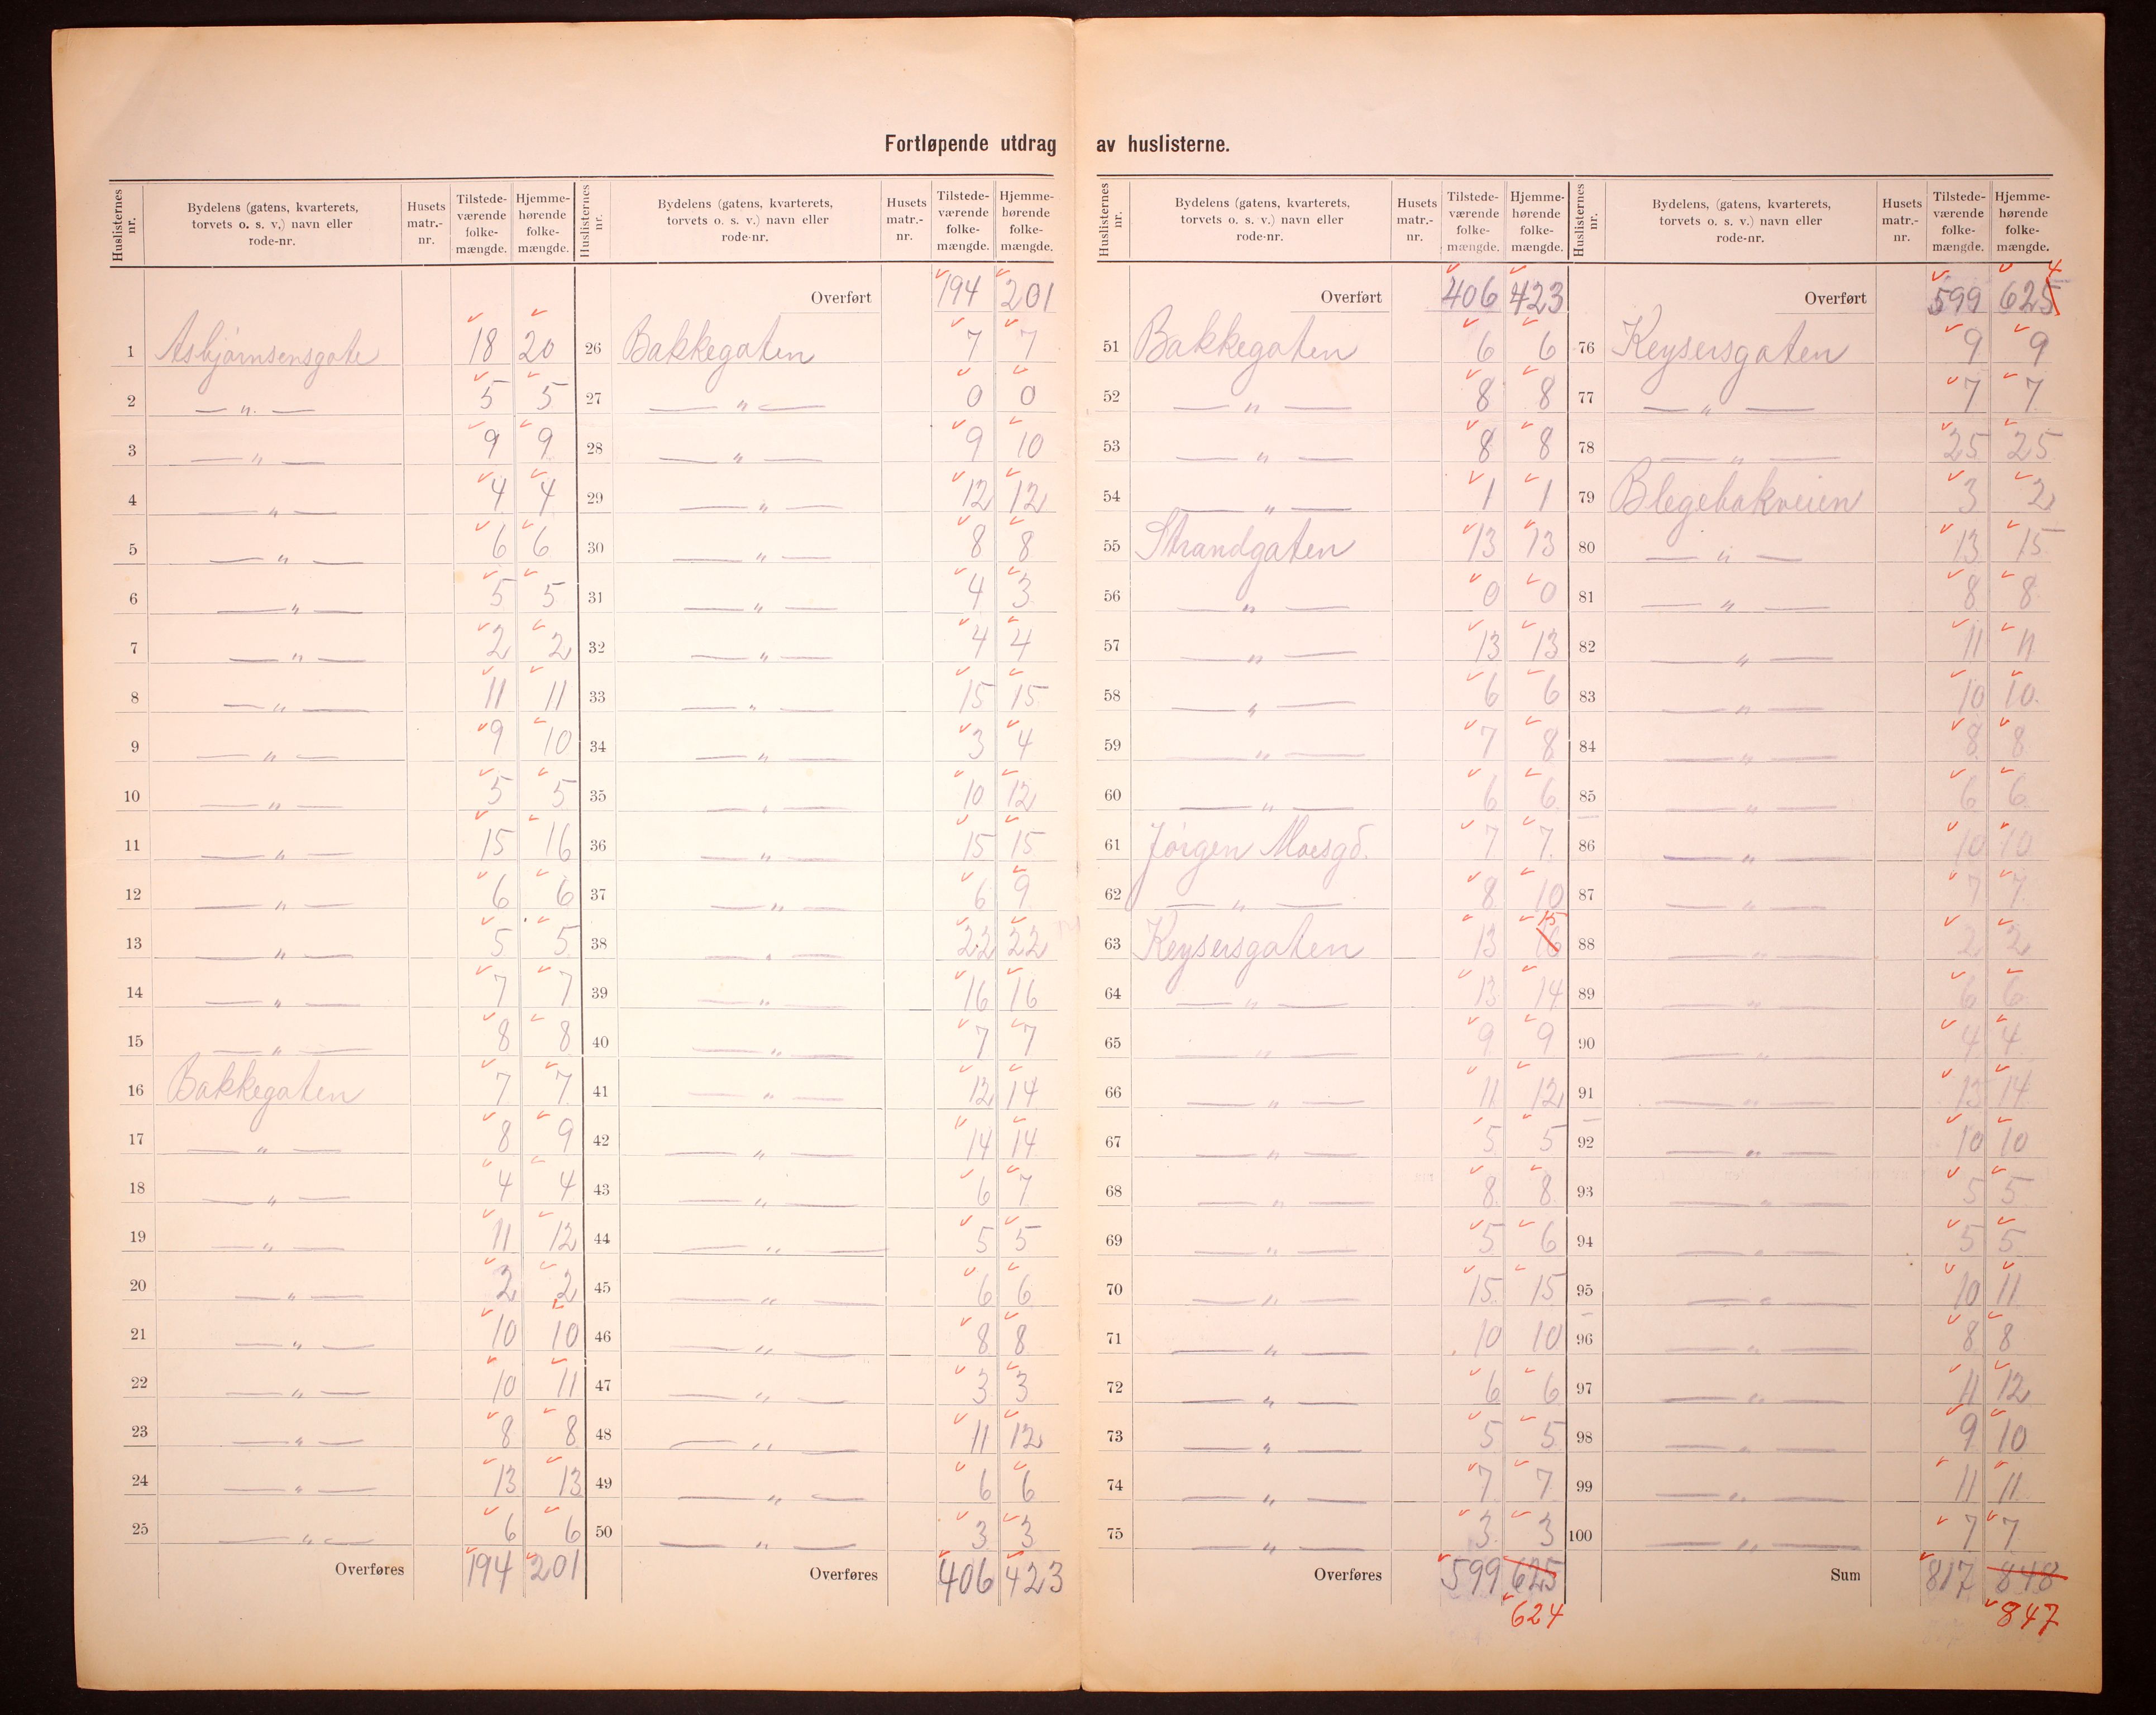 Fortløpende utdrag av huslisterne.
Huslisternes nr. | Bydelens (gatens, kvarterets, torvets o. s. v.) navn eller rode-nr. | Husets matr.-nr. | Tilstedeværende folkemængde. | Hjemmehørende folkemængde.
1 Asbjørnsensgate 18 20
2 — " — 5 5
3 — " — 9 9
4 — " — 4 4
5 — " — 6 6
6 — " — 5 5
7 — " — 2 2
8 — " — 11 11
9 — " — 9 10
10 — " — 5 5
11 — " — 15 16
12 — " — 6 6
13 — " — 5 5
14 — " — 7 7
15 — " — 8 8
16 Bakkegaten 7 7
17 — " — 8 9
18 — " — 4 4
19 — " — 11 12
20 — " — 2 2
21 — " — 10 10
22 — " — 10 11
23 — " — 8 8
24 — " — 13 13
25 — " — 6 6
Overføres 194 201
Huslisternes nr. | Bydelens (gatens, kvarterets, torvets o. s. v.) navn eller rode-nr. | Husets matr.-nr. | Tilstedeværende folkemængde. | Hjemmehørende folkemængde.
Overført 194 201
26 Bakkegaten 7 7
27 — " — 0 0
28 — " — 9 10
29 — " — 12 12
30 — " — 8 8
31 — " — 4 3
32 — " — 4 4
33 — " — 15 15
34 — " — 3 4
35 — " — 10 12
36 — " — 15 15
37 — " — 6 9
38 — " — 22 22
39 — " — 16 16
40 — " — 7 7
41 — " — 12 14
42 — " — 14 14
43 — " — 6 7
44 — " — 5 5
45 — " — 6 6
46 — " — 8 8
47 — " — 3 3
48 — " — 11 12
49 — " — 6 6
50 — " — 3 3
Overføres 406 423
Huslisternes nr. | Bydelens (gatens, kvarterets, torvets o. s. v.) navn eller rode-nr. | Husets matr.-nr. | Tilstedeværende folkemængde. | Hjemmehørende folkemængde.
Overført 406 423
51 Bakkegaten 6 6
52 — " — 8 8
53 — " — 8 8
54 — " — 1 1
55 Strandgaten 13 13
56 — " — 0 0
57 — " — 13 13
58 — " — 6 6
59 — " — 7 8
60 — " — 6 6
61 Jørgen Moesgd. 7 7
62 — " — 8 10
63 Keysersgaten 13 16 15
64 — " — 13 14
65 — " — 9 9
66 — " — 11 12
67 — " — 5 5
68 — " — 8 8
69 — " — 5 6
70 — " — 15 15
71 — " — 10 10
72 — " — 6 6
73 — " — 5 5
74 — " — 7 7
75 — " — 3 3
Overføres 599 625
624
Huslisternes nr. | Bydelens, (gatens, kvarterets, torvets o. s. v.) navn eller rode-nr. | Husets matr.-nr. | Tilstedeværende folkemængde. | Hjemmehørende folkemængde.
Overført 599 625 4
76 Keysersgaten 9 9
77 — " — 7 7
78 — " — 25 25
79 Blegebakveien 3 2
80 — " — 13 15
81 — " — 8 8
82 — " — 11 11
83 — " — 10 10
84 — " — 8 8
85 — " — 6 6
86 — " — 10 10
87 — " — 7 7
88 — " — 2 2
89 — " — 6 6
90 — " — 4 4
91 — " — 13 14
92 — " — 10 10
93 — " — 5 5
94 — " — 5 5
95 — " — 10 11
96 — " — 8 8
97 — " — 11 12
98 — " — 9 10
99 — " — 11 11
100 — " — 7 7
Sum 817 848
847